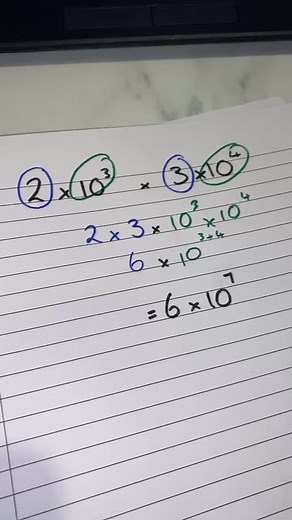 2 × 10³ × 3 × 10⁴
2 × 3 × 10³ × 10⁴
6 × 10³⁺⁴
= 6 × 10⁷